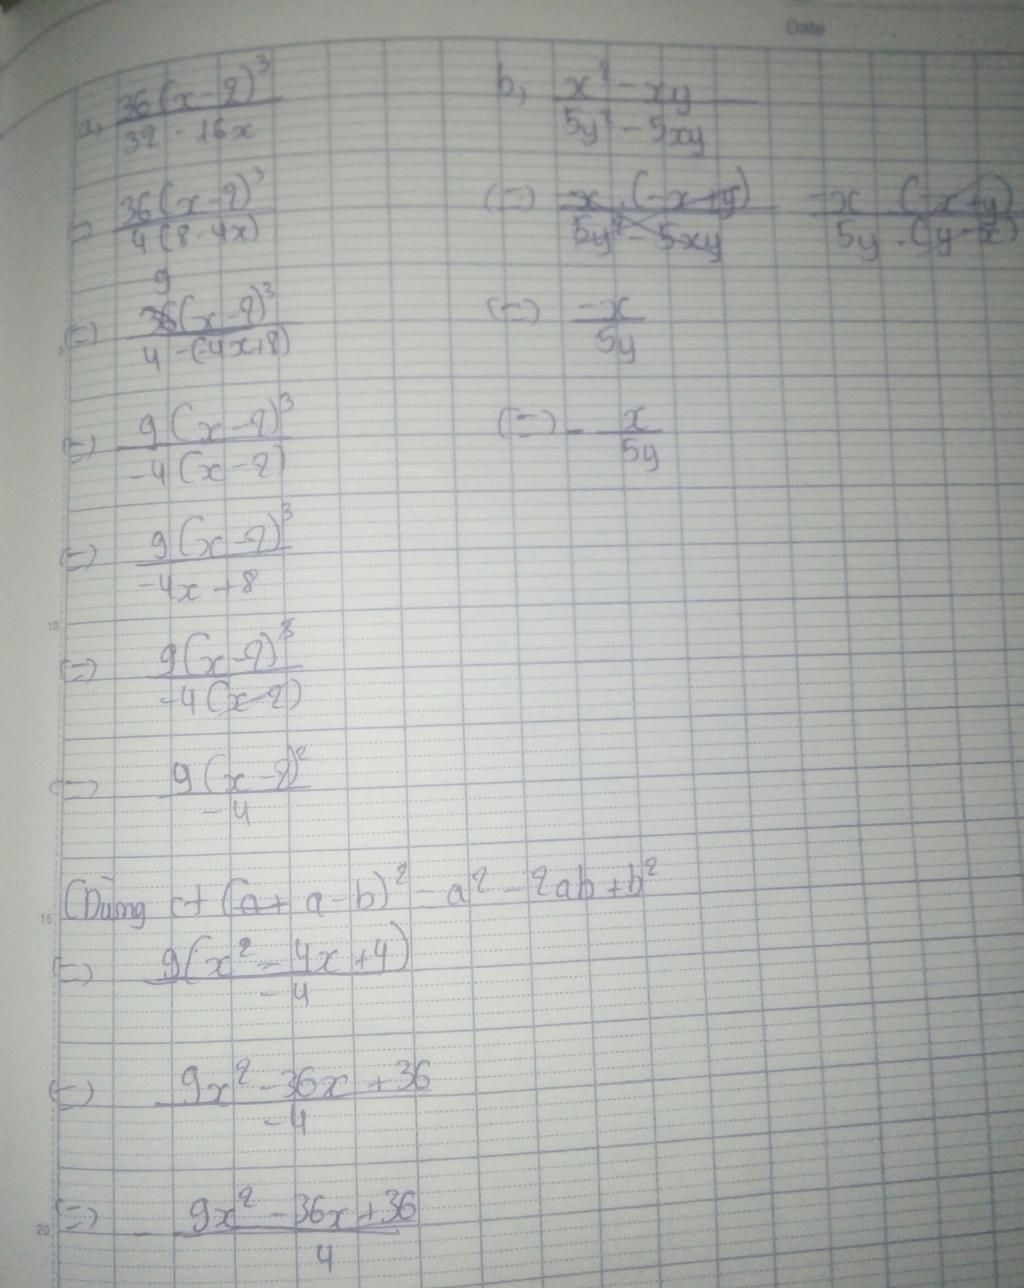 Date
a, 36(x-2)³ / 32 - 16x
⇔ 36(x-2)³ / 4(8-4x)
⇔ 9 36(x-2)³ / 4 -(-4x+8)
⇔ 9(x-2)³ / -4(x-2)
⇔ 9(x-2)³ / -4x+8
10
⇔ 9(x-2)³ / -4(x-2)
⇔ 9(x-2)² / -4
15 (Dùng ct (a+ a-b)² = a² - 2ab + b²
⇔ 9(x² - 4x + 4) / -4
⇔ 9x² - 36x + 36 / -4
20 ⇔ - 9x² - 36x + 36 / 4
b, x² - xy / 5y² - 5xy
(=) -x.(-x+y) / 5y² - 5xy -x.(-x+y) / 5y.(y-x)
(=) -x / 5y
(=) - x / 5y